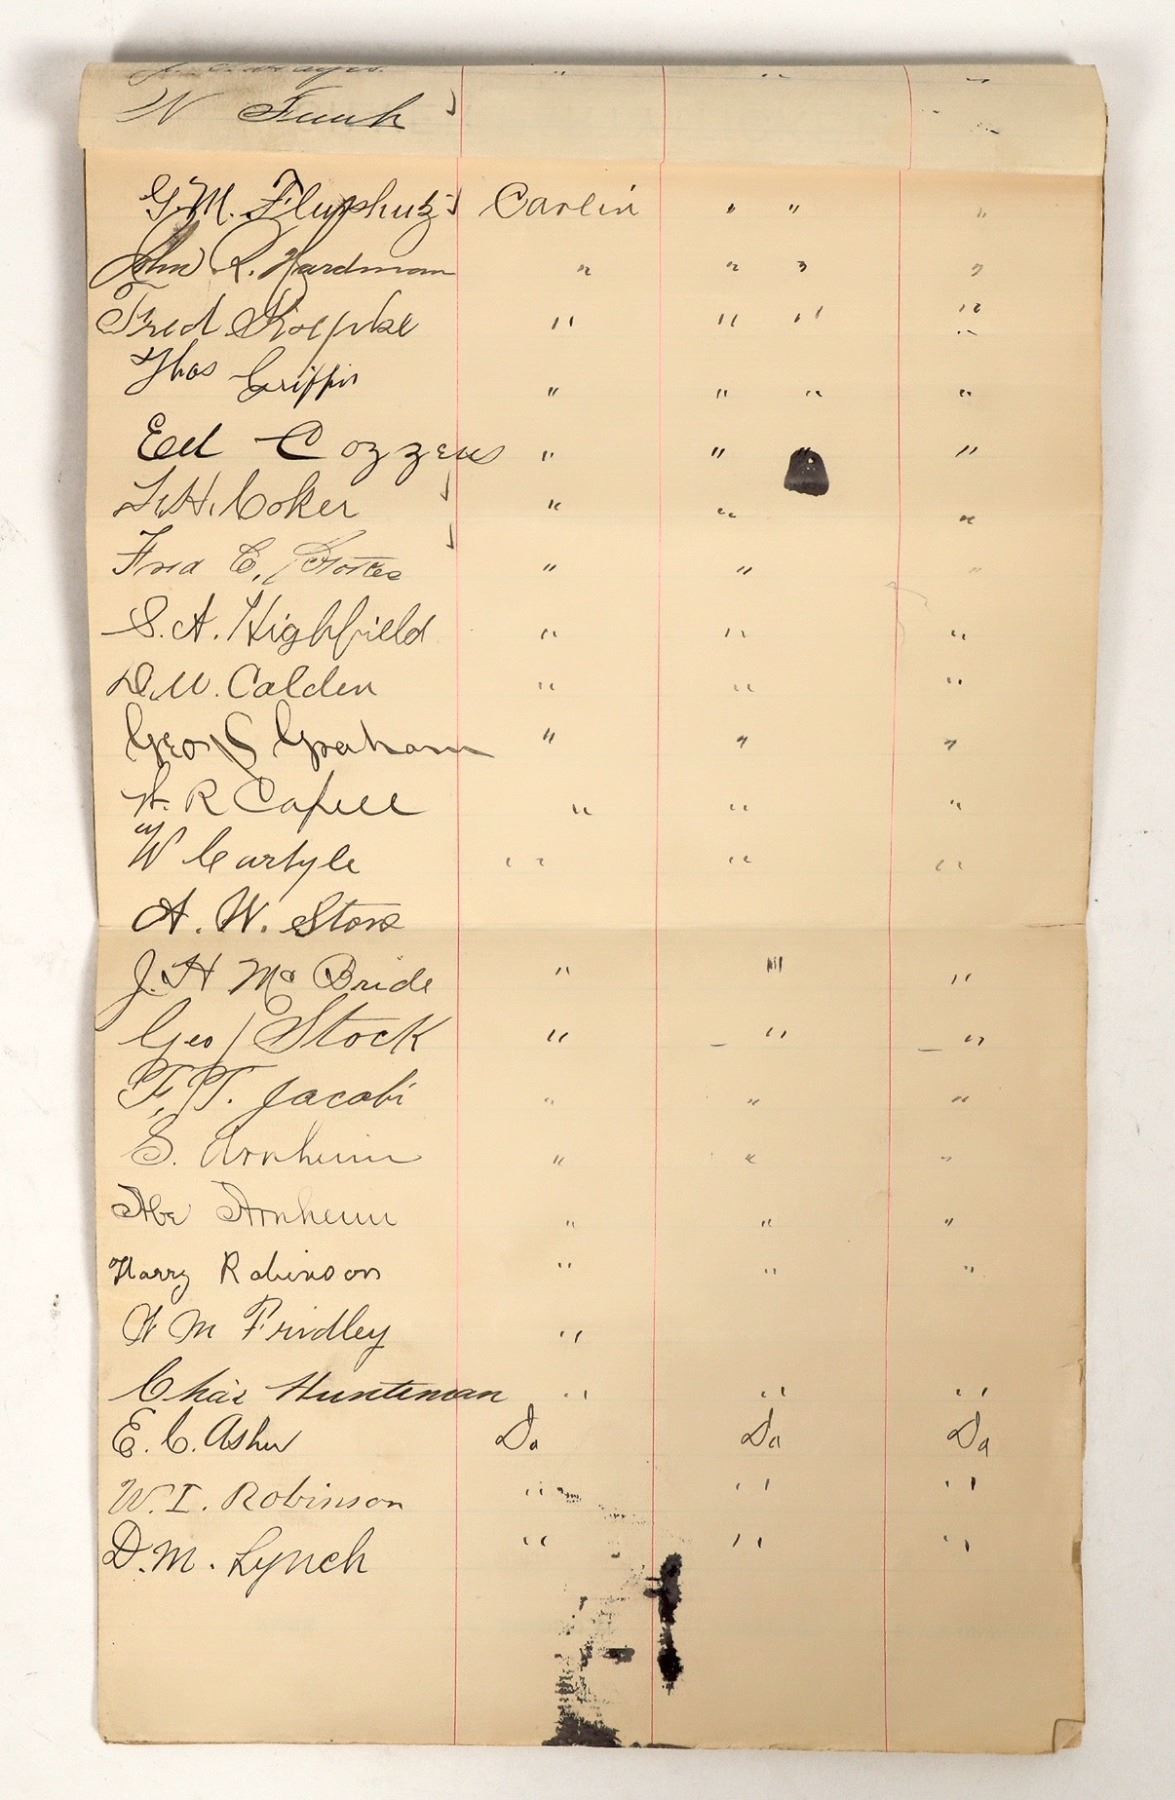 N Funk
G. M. Carlin " " "
John R. Hardman " " " "
Fred Koepke " " " "
Thos Griffin " " " "
Ed Cozzens " " " "
L. H. Coker " " "
Fred C. " " "
S. A. Highfield " " "
D. W. Calden " " "
Geo S Graham " " "
R " " "
W Carlyle " " "
A. W. Stone
J. H McBride " " "
Geo Stock " " "
F. T. Jacobi " " "
S. Arnheim " " "
Abe Arnheim " " "
Harry Robinson " " "
W M Fridley "
Chas Hunteman " " "
E. C. Asher Do Do Do
W. I. Robinson " " "
D. M. Lynch " " "